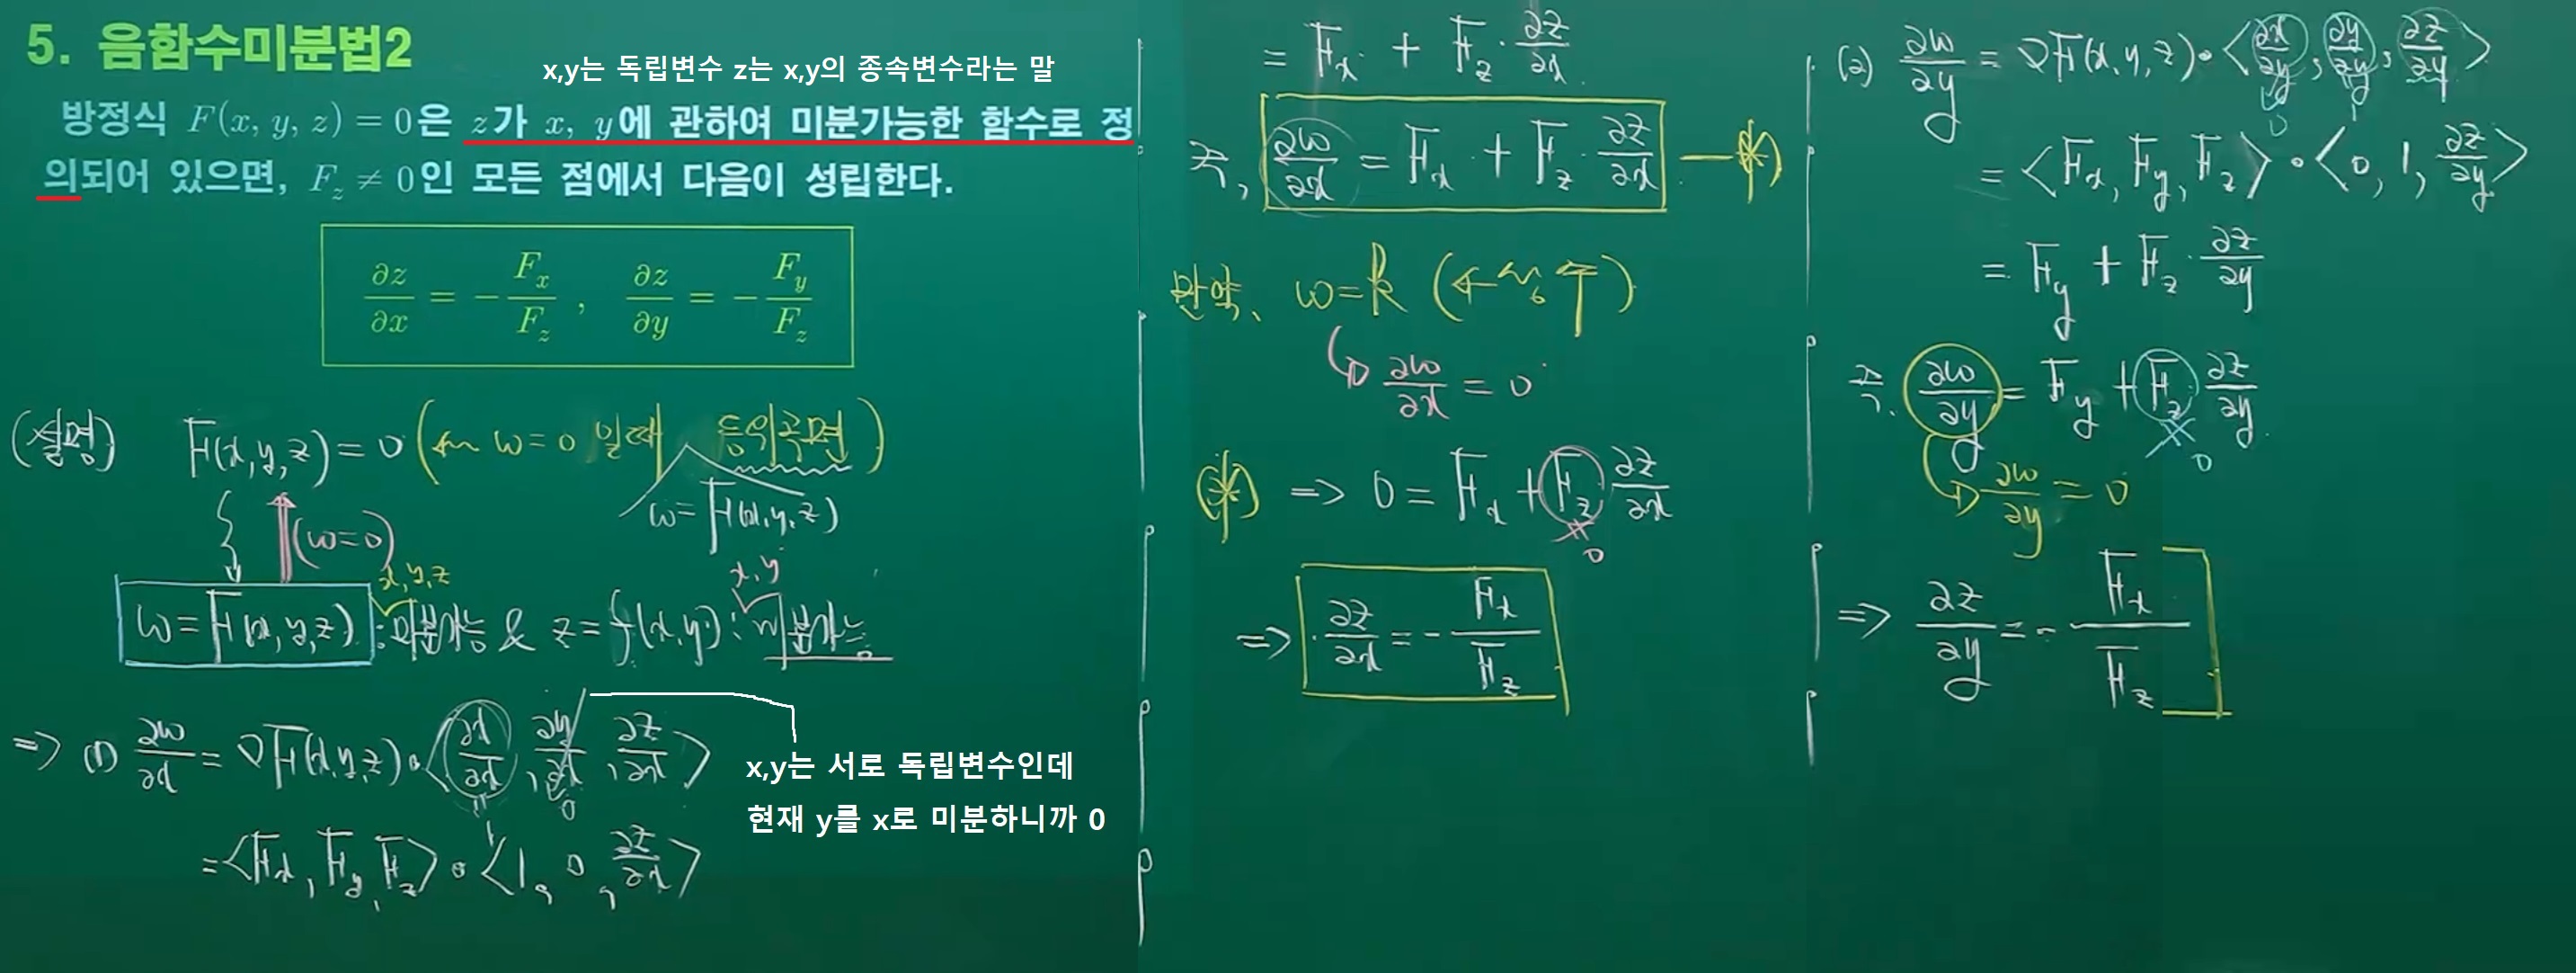 5. 음함수미분법2
x,y는 독립변수 z는 x,y의 종속변수라는 말
방정식 F(x, y, z) = 0은 z가 x, y에 관하여 미분가능한 함수로 정
의되어 있으면, F_z ≠ 0인 모든 점에서 다음이 성립한다.
∂z/∂x = - F_x/F_z , ∂z/∂y = - F_y/F_z
(설명) F(x,y,z) = 0 (← w=0 일때 등위곡면)
w = F(x,y,z)
(w=0)
x,y,z
x,y
w = F(x,y,z) : 미분가능 & z = f(x,y) : 미분가능
⇒ (1) ∂w/∂x = ∇F(x,y,z)·<∂x/∂x, ∂y/∂x, ∂z/∂x>
1 0
x,y는 서로 독립변수인데
현재 y를 x로 미분하니까 0
= <F_x, F_y, F_z>·<1, 0, ∂z/∂x>
= F_x + F_z·∂z/∂x
즉, ∂w/∂x = F_x + F_z·∂z/∂x —(*)
만약, w = k
∂w/∂x = 0
(*) ⇒ 0 = F_x + F_z ∂z/∂x
≠ 0
⇒ ∂z/∂x = - F_x/F_z
(2) ∂w/∂y = ∇F(x,y,z)·<∂x/∂y, ∂y/∂y, ∂z/∂y>
0 1
= <F_x, F_y, F_z>·<0, 1, ∂z/∂y>
= F_y + F_z·∂z/∂y
즉, ∂w/∂y = F_y + F_z ∂z/∂y
≠ 0
∂w/∂y = 0
⇒ ∂z/∂y = - F_x/F_z